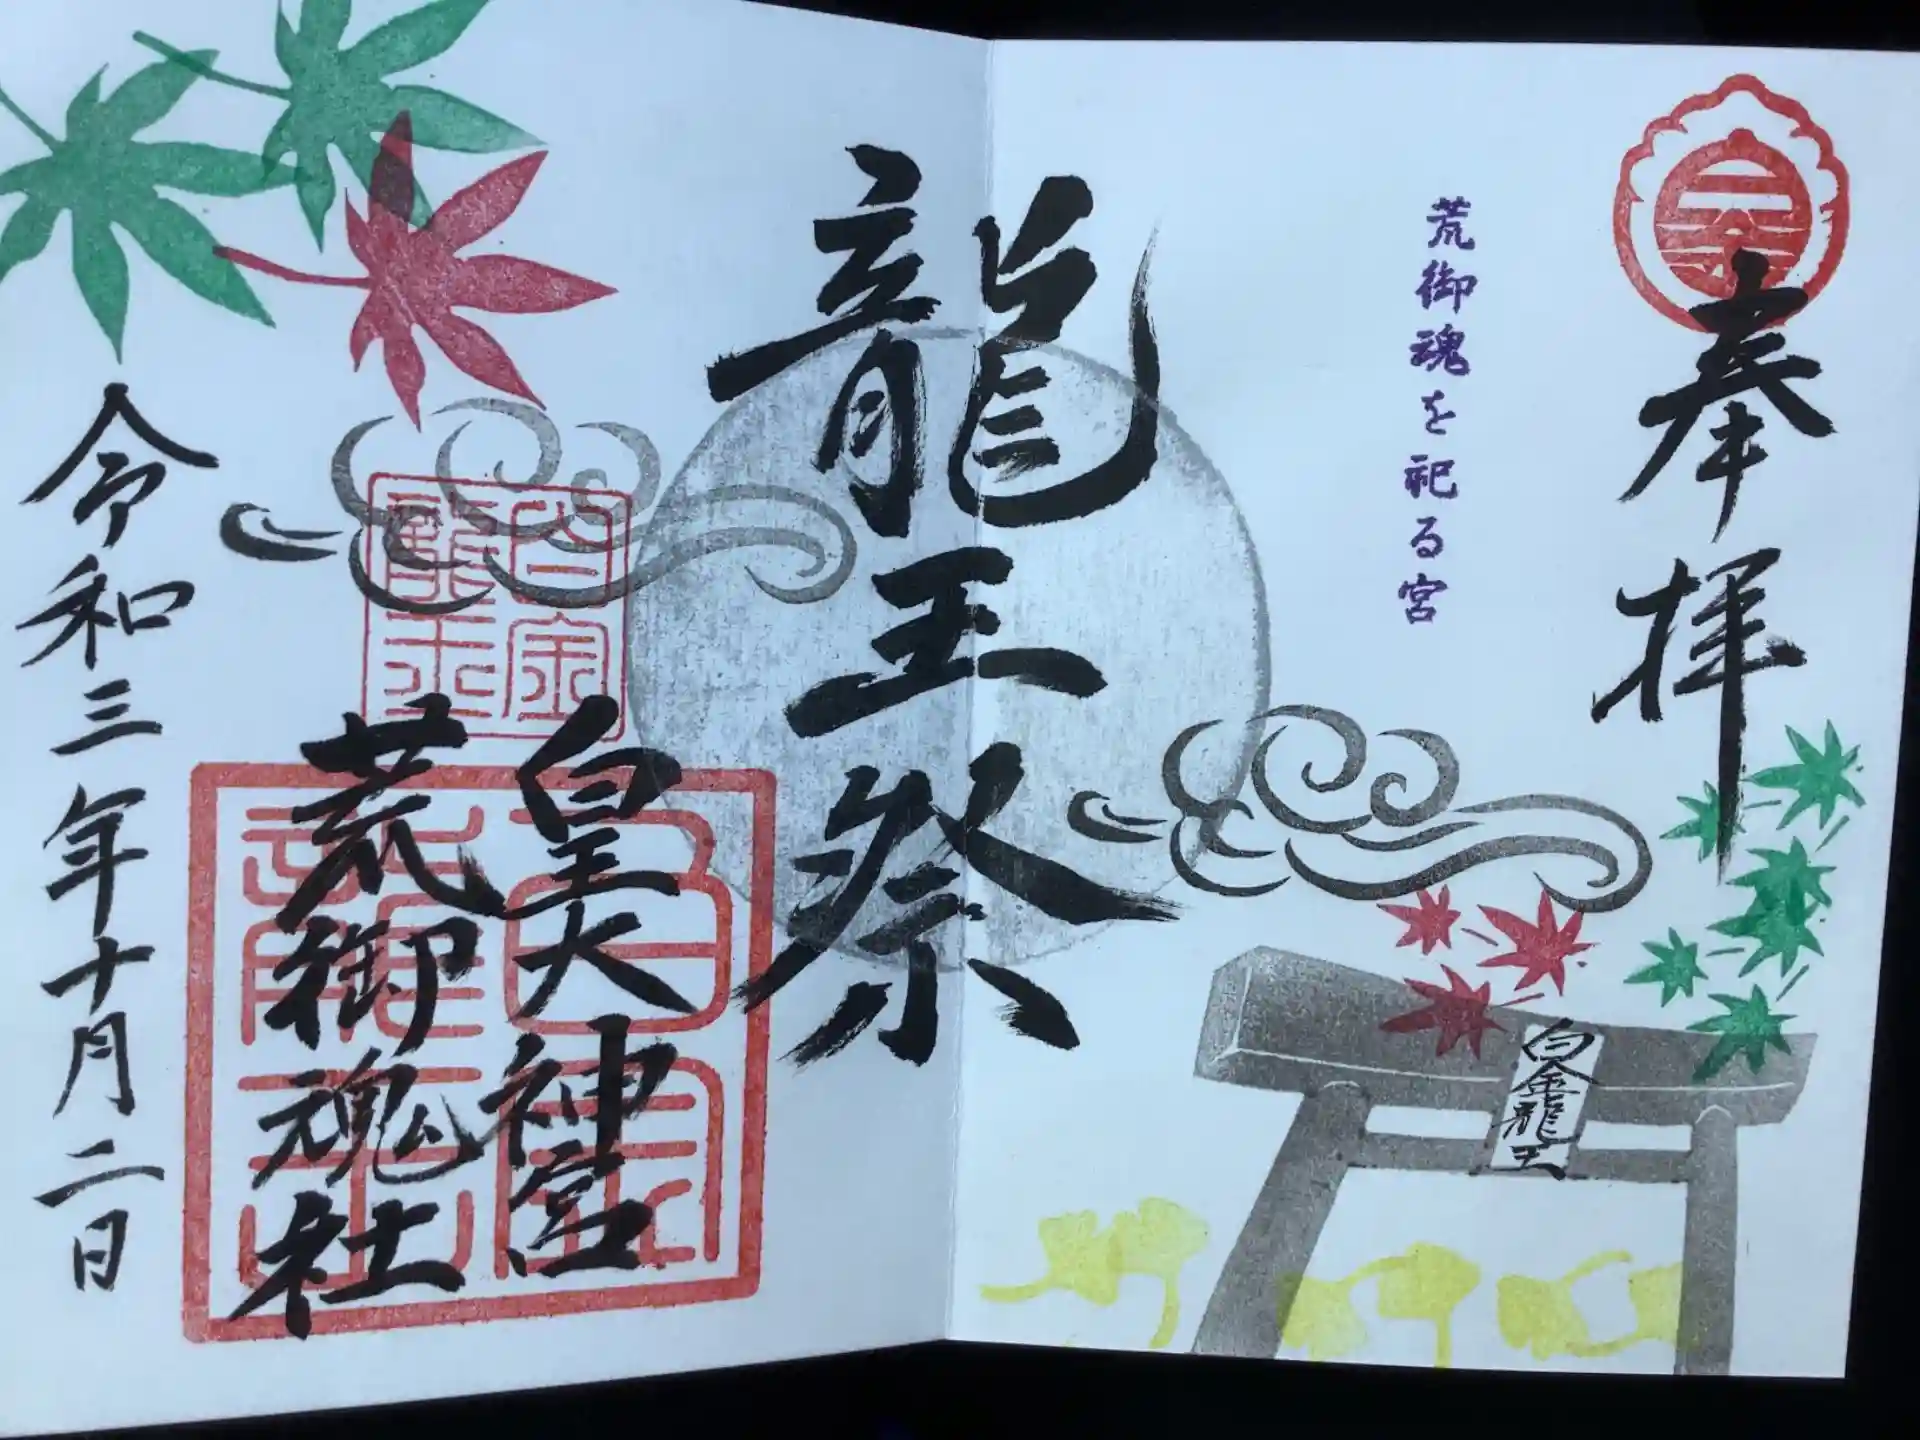 奉拝
荒御魂を祀る宮
白金龍王
龍王祭
皇大神宮
荒御魂社
白金
龍王
令和三年十月二日